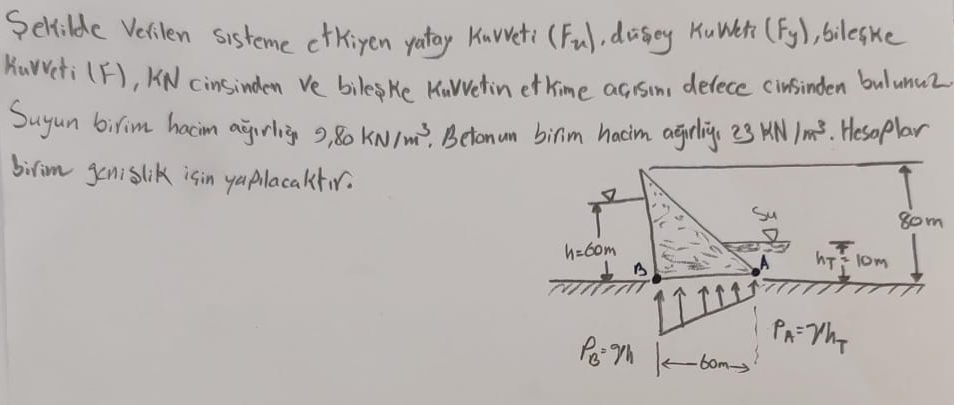 Şekilde Verilen sisteme etkiyen yatay Kuvveti (Fx), düşey Kuvveti (Fy), bileşke
Kuvveti (F), KN cinsinden ve bileşke Kuvvetin etkime açısını derece cinsinden bulunuz
Suyun birim hacim ağırlığı 9,80 KN/m³. Betonun birim hacim ağırlığı 23 KN/m³. Hesaplar
birim genişlik için yapılacaktır.
Su
80m
h=60m
hT=10m
B
A
PB=γh
60m
PA=γhT